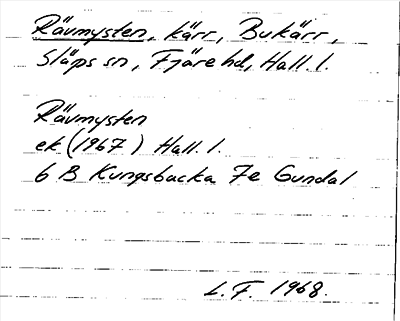 Rävmysten, kärr, Bukärr,
Släps sn, Fjäre hd, Hall. l.
Rävmysten
ek (1967) Hall. l.
6 B Kungsbacka 7e Gundal
L. F. 1968.